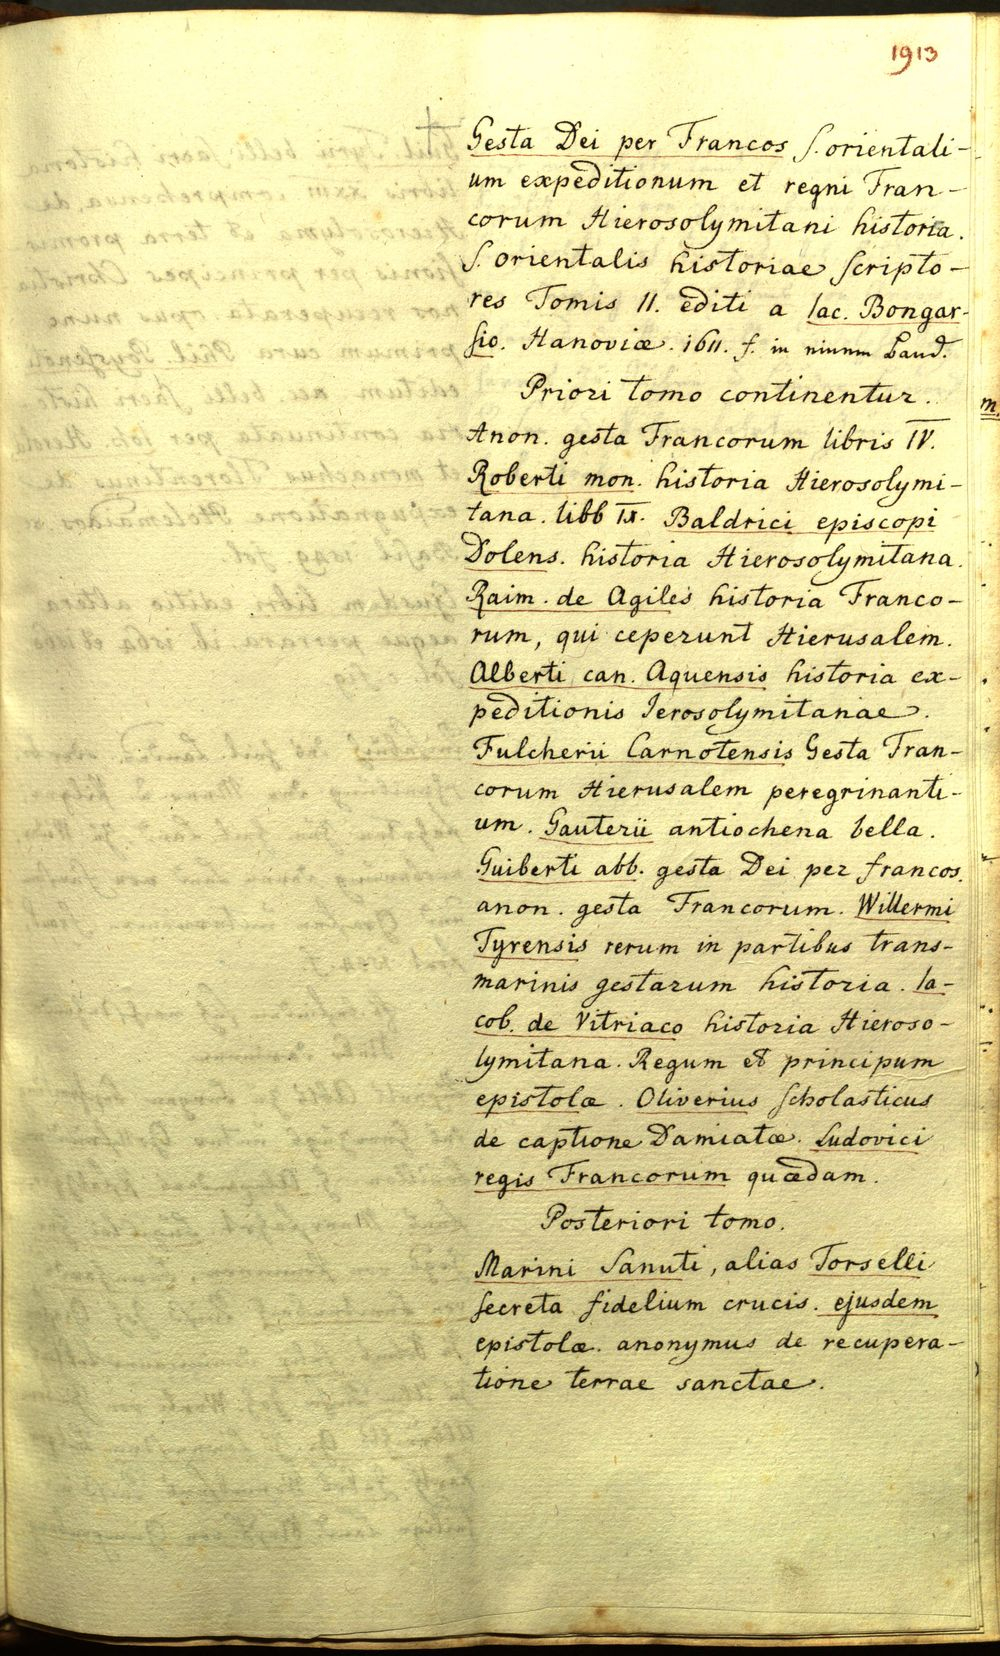 1913
Gesta Dei per Francos S. orientali-
um expeditionum et regni Fran-
corum Hierosolymitani historia.
S. orientalis historiae scripto-
res Tomis II. editi a Iac. Bongar-
sio. Hanoviæ. 1611. f. in einem Band.
Priori tomo continentur.
m.
Anon. gesta Francorum libris IV.
Roberti mon. historia Hierosolymi-
tana. libb IX. Baldrici episcopi
Dolens. historia Hierosolymitana.
Raim. de Agiles historia Franco-
rum, qui ceperunt Hierusalem.
Alberti can. Aquensis historia ex-
peditionis Ierosolymitanae.
Fulcherii Carnotensis Gesta Fran-
corum Hierusalem peregrinanti-
um. Gauterii antiochena bella.
Guiberti abb. gesta Dei per francos.
anon. gesta Francorum. Willermi
Tyrensis rerum in partibus trans-
marinis gestarum historia. Ia-
cob. de Vitriaco historia Hieroso-
lymitana. Regum et principum
epistolæ. Oliverius scholasticus
de captione Damiatæ. Ludovici
regis Francorum quædam.
Posteriori tomo.
Marini Sanuti, alias Torselli
secreta fidelium crucis. ejusdem
epistolæ. anonymus de recupera-
tione terrae sanctae.